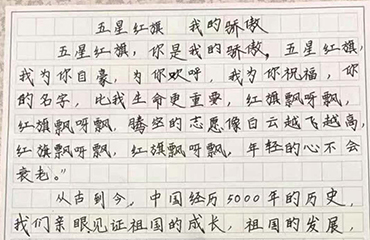 五星红旗 我的骄傲
五星红旗,你是我的骄傲,五星红旗,
我为你自豪,为你欢呼,我为你祝福,你
的名字,比我生命更重要,红旗飘呀飘,
红旗飘呀飘,腾空的志愿像白云越飞越高,
红旗飘呀飘,红旗飘呀飘,年轻的心不会
衰老。”
从古到今,中国经历5000年的历史,
我们亲眼见证祖国的成长,祖国的发展,